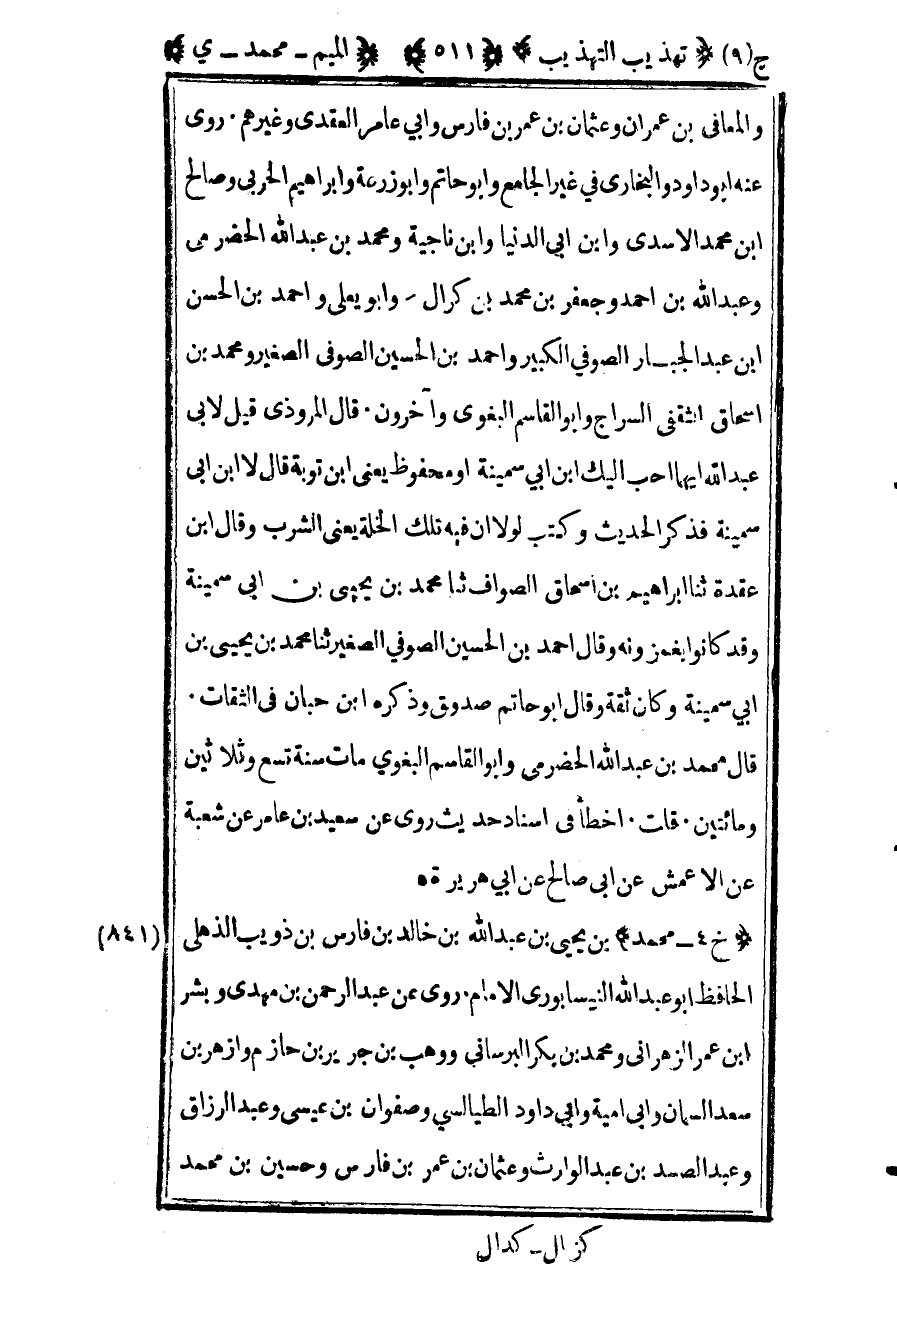 ج(٩) ﴿ تهذيب التهذيب ﴾ ﴿ ٥١١ ﴾ ﴿ الميم - محمد - ي ﴾
والمعافى بن عمران وعثمان بن عمر بن فارس وابي عامر العقدى وغيرهم ٠ روى
عنه ابوداود والبخارى في غير الجامع وابوحاتم وابوزرعة وابراهيم الحربى وصالح
ابن محمد الاسدى وابن ابي الدنيا وابن ناجية ومحمد بن عبدالله الحضرمى
وعبدالله بن احمد وجعفر بن محمد بن كرال وابو يعلى واحمد بن الحسن
ابن عبد الجبار الصوفي الكبير واحمد بن الحسين الصوفى الصغير ومحمد بن
اسحاق الثقفى السراج وابو القاسم البغوى وآخرون ٠ قال المروذى قيل لابى
عبدالله ايهما احب اليك ابن ابي سمينة او محفوظ يعنى ابن توبة قال لا ابن ابى
سمينة فذكر الحديث وكتب لولا ان فيه تلك الخلة يعنى الشرب وقال ابن
عقدة ثنا ابراهيم بن اسحاق الصواف ثنا محمد بن يحيى بن ابى سمينة
وقد كانوا يغمزونه وقال احمد بن الحسين الصوفي الصغير ثنا محمد بن يحيى بن
ابي سمينة وكان ثقة وقال ابو حاتم صدوق وذكره ابن حبان فى الثقات ٠
قال محمد بن عبدالله الحضرمى وابو القاسم البغوي مات سنة تسع وثلاثين
ومائتين ٠ قلت ٠ اخطأ فى اسناد حديث روى عن سعيد بن عامر عن شعبة
عن الاعمش عن ابى صالح عن ابي هريرة ٥
﴿ خ ٤ - محمد ﴾ بن يحيى بن عبدالله بن خالد بن فارس بن ذويب الذهلى (٨٤١)
الحافظ ابو عبدالله النيسابورى الامام ٠ روى عن عبد الرحمن بن مهدى وبشر
ابن عمر الزهرانى ومحمد بن بكر البرساني ووهب بن جرير بن حازم وازهر بن
سعد السمان وابى امية وابي داود الطيالسي وصفوان بن عيسى وعبد الرزاق
وعبد الصمد بن عبد الوارث وعثمان بن عمر بن فارس وحسين بن محمد
كزال - كدال